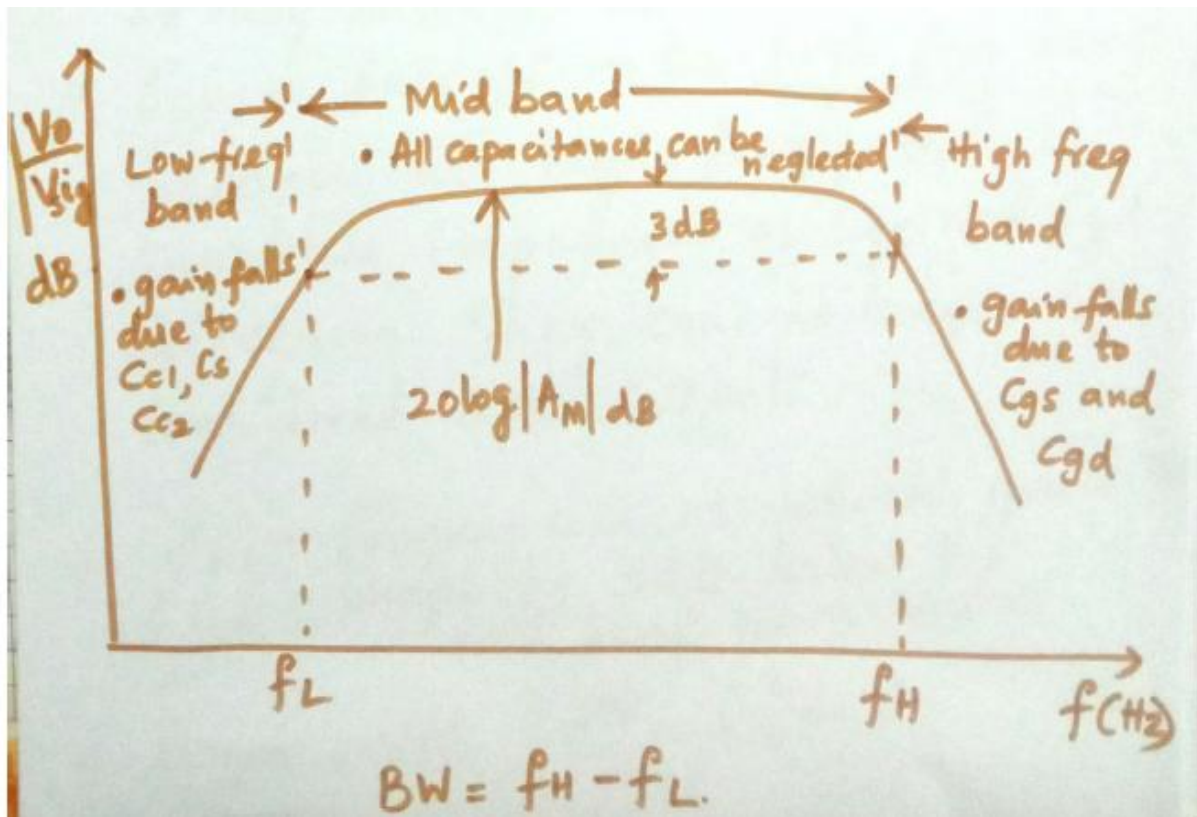 |Vo
Vsig|
dB
Low-freq
band
• gain falls
due to
Cc1, Cs
Cc2
Mid band
• All capacitances can be
neglected
3dB
20log|AM| dB
High freq
band
• gain falls
due to
Cgs and
Cgd
fL
fH
f(Hz)
BW = fH - fL.